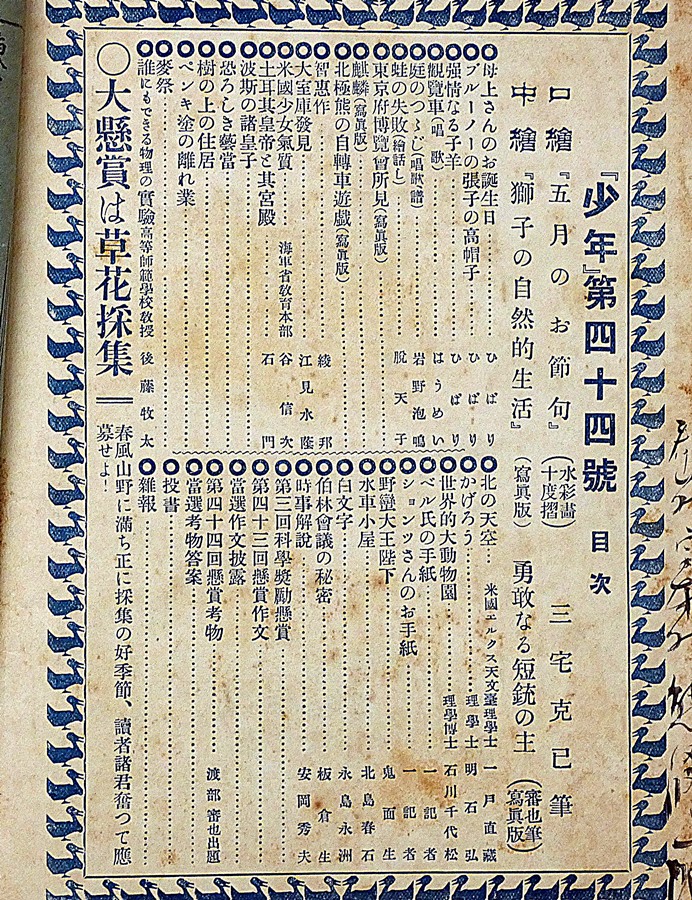 『少年』第四十四號 目次
口繪『五月のお節句』(水彩畫十度摺) 三宅克己筆
中繪『獅子の自然的生活』(寫眞版) 勇敢なる短銃の主(審也筆寫眞版)
母上さんのお誕生日 ひばり
ブルーノーの張子の高帽子 ひばり
强情なる子羊 ひばり
觀覽車(唱歌) はうめい
庭のつゝじ(唱歌譜) 岩野泡鳴
蛙の失敗(繪話し) 脫天子
東京府博覽會所見(寫眞版)
麒麟(寫眞版)
北極熊の自轉車遊戲(寫眞版)
智惠作 綾邦
大室庫發見 江見水蔭
米國少女氣質 海軍省敎育本部 谷信次
土耳其皇帝と其宮殿 石門
波斯の諸皇子
恐ろしき藝當
樹の上の住居
ペンキ塗の離れ業
麥祭
誰にもできる物理の實驗 高等師範學校敎授 後藤牧太
北の天空 米國エルクス天文臺理學士 一戶直藏
かげろう 理學士 明石弘
世界的大動物園 理學博士 石川千代松
ベル氏の手紙 一記者
ションツさんのお手紙 一記者
野蠻大王陛下 鬼面生
水車小屋 北島春石
白文字 永島永洲
伯林會議の秘密 板倉生
時事解說 安岡秀夫
第三回科學奬勵懸賞
第四十三回懸賞作文
當選作文披露
第四十四回懸賞考物 渡部審也出題
當選考物答案
投書
雜報
○大懸賞は草花採集＝春風山野に滿ち正に採集の好季節、讀者諸君奮つて應募せよ！